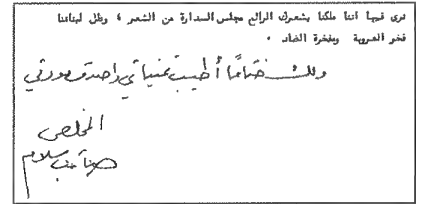 نرى فيها اننا ملكنا بشعرك الرائع مجلس الصدارة من الشعر ، وظل لبناننا
فخر العروبة ومفخرة الضاد .
ولك ختاماً أطيب تمنياتي وأصدق مودتي
المخلص
صائب سلام